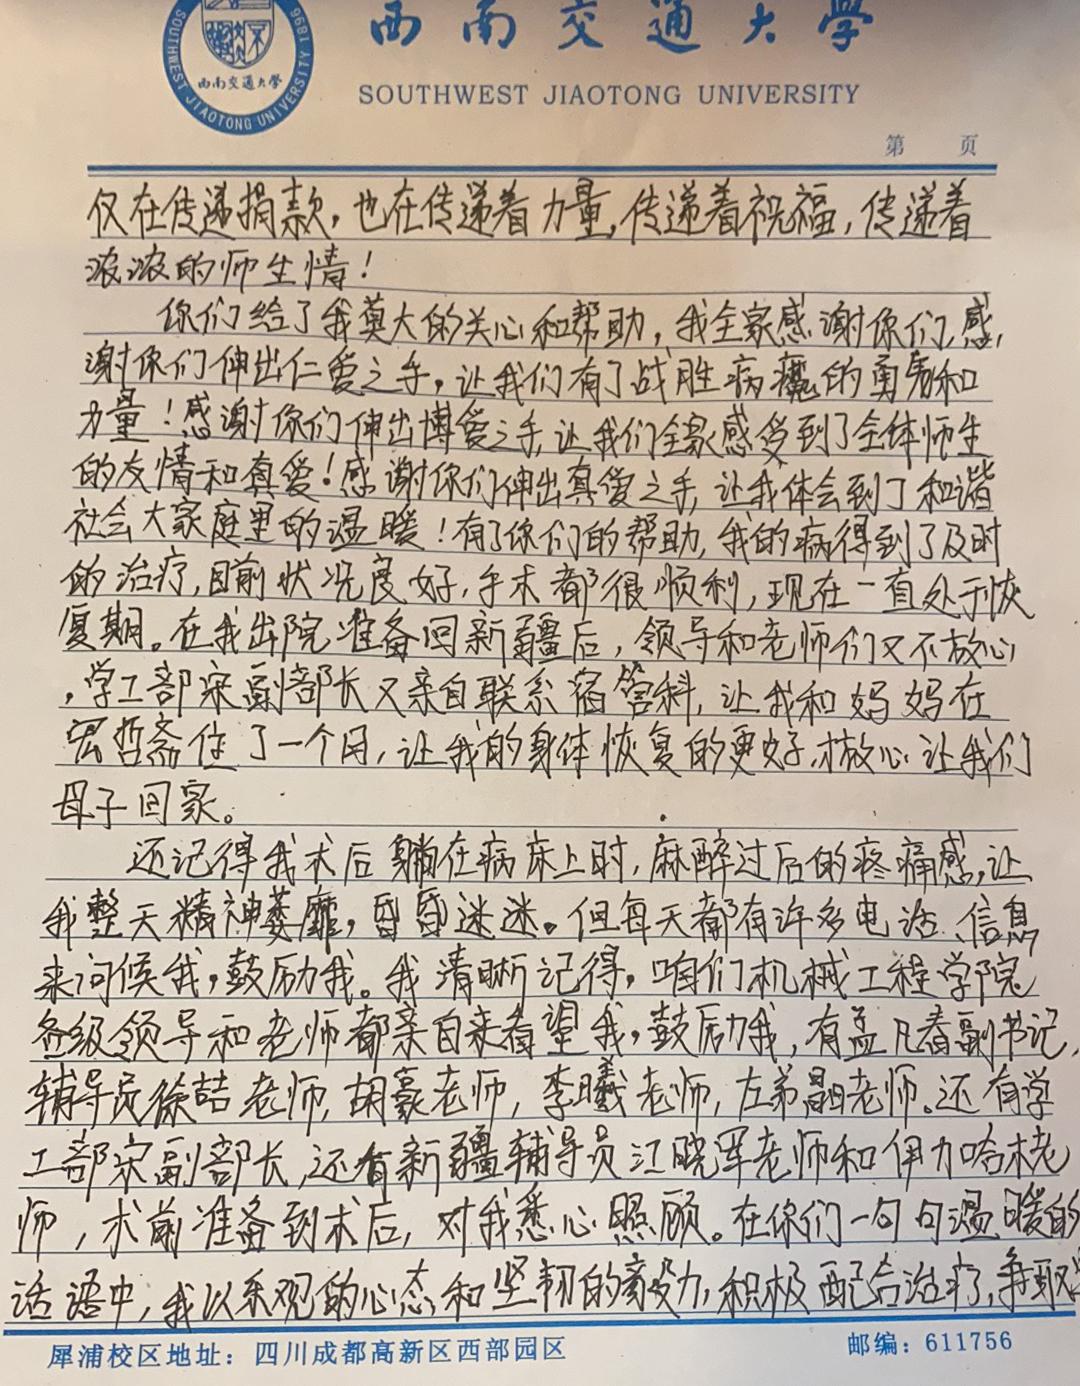 SOUTHWEST JIAOTONG UNIVERSITY 1896
西南交通大学
西南交通大学
SOUTHWEST JIAOTONG UNIVERSITY
第 页
仅在传递捐款，也在传递着力量，传递着祝福，传递着
浓浓的师生情！
你们给了我莫大的关心和帮助，我全家感谢你们，感
谢你们伸出仁爱之手，让我们有了战胜病魔的勇气和
力量！感谢你们伸出博爱之手，让我们全家感受到了全体师生
的友情和真爱！感谢你们伸出真爱之手，让我体会到了和谐
社会大家庭里的温暖！有了你们的帮助，我的病得到了及时
的治疗，目前状况良好，手术都很顺利，现在一直处于恢
复期。在我出院准备回新疆后，领导和老师们又不放心
，学工部宋副部长又亲自联系宿管科，让我和妈妈在
宏哲斋住了一个月，让我的身体恢复的更好，才放心让我们
母子回家。
还记得我术后躺在病床上时，麻醉过后的疼痛感，让
我整天精神萎靡，昏昏迷迷。但每天都有许多电话、信息
来问候我，鼓励我。我清晰记得，咱们机械工程学院
各级领导和老师都亲自来看望我，鼓励我，有孟凡春副书记，
辅导员徐喆老师，胡豪老师，李曦老师，左弟老师。还有学
工部宋副部长，还有新疆辅导员江晓军老师和伊力哈木老
师，术前准备到术后，对我悉心照顾。在你们一句句温暖的
话语中，我以乐观的心态和坚韧的毅力，积极配合治疗，争取
犀浦校区地址：四川成都高新区西部园区
邮编：611756